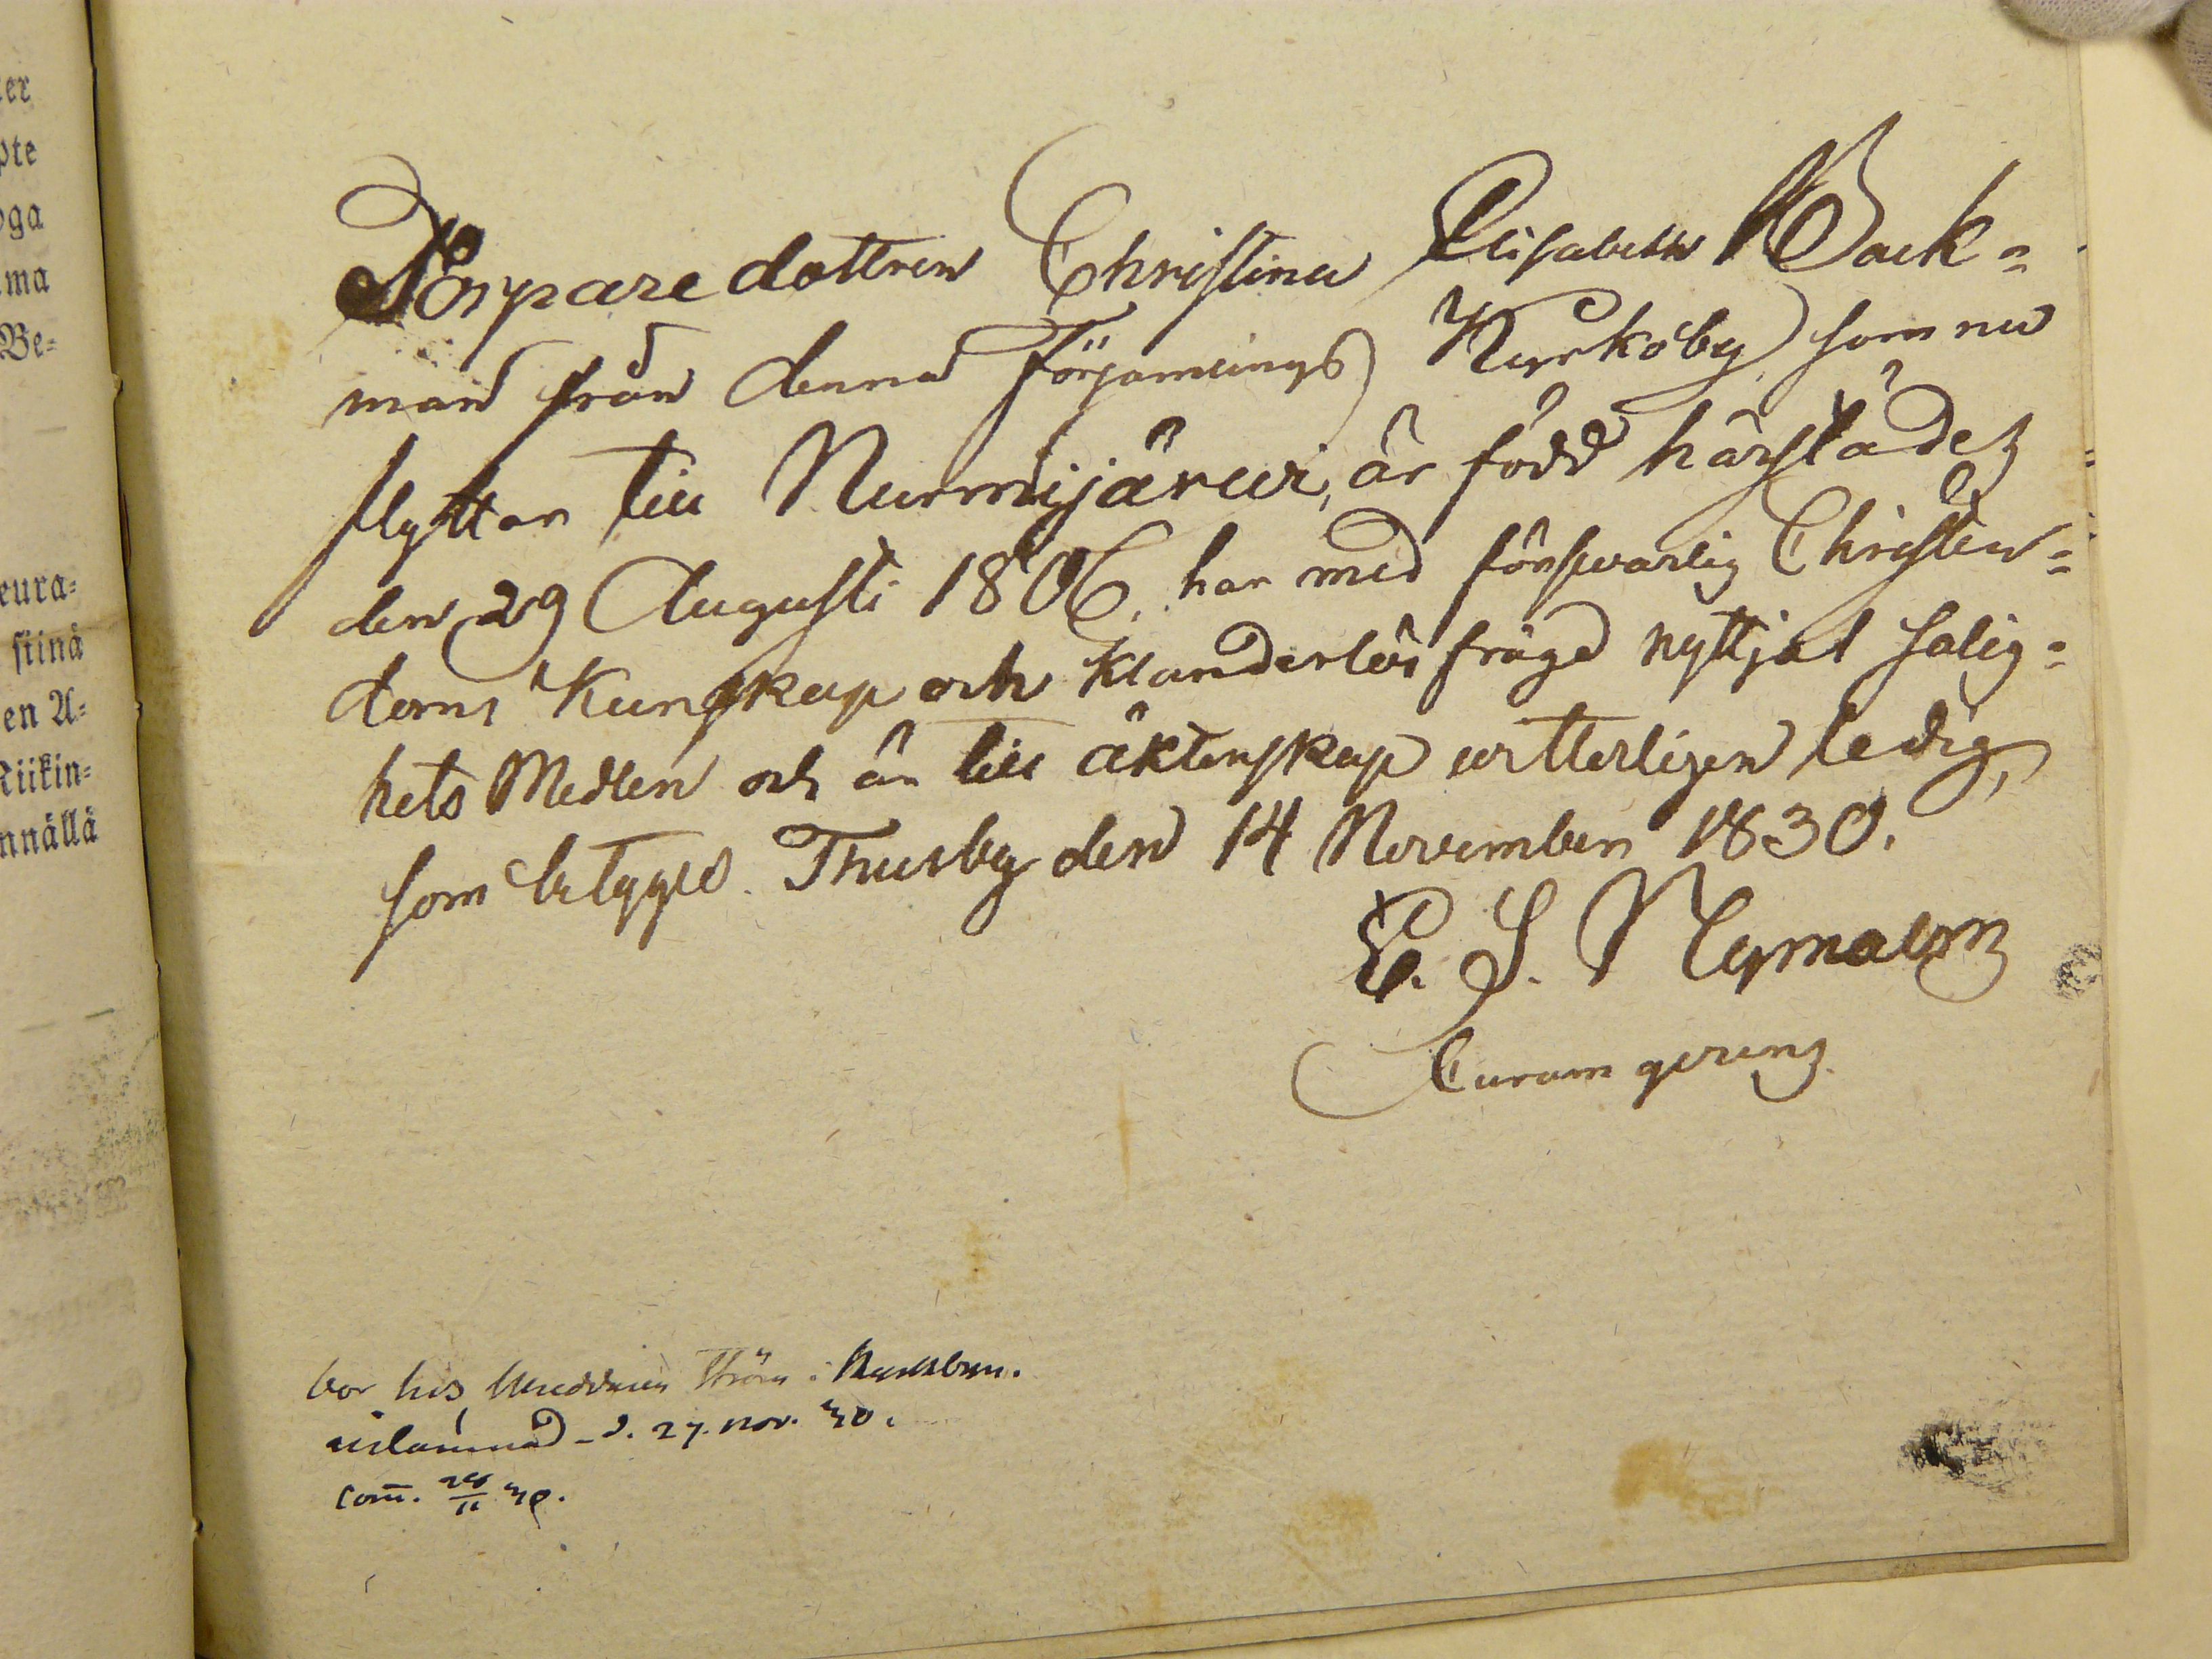 er
pte
oga
ma
Be=
eura=
stinä
en A=
Riikin=
nnällä
Torparedottren Christina Elisabeth Back=
man från denna Församlings Kyrkoby, som nu
flyttar till Nurmijärvi, är född härstädes
den 29 Augusti 1806, har med försvarlig Christen=
doms Kunskap och klanderlös frägd nyttjat Salig=
hets Medlen och är till äktenskap witterligen ledig,
som betygas. Thusby den 14 November 1830.
E. J. Nymalm
Curam gerens
bor hos
inlämnad d. 27. nov. 30.
com. 28/11 30.